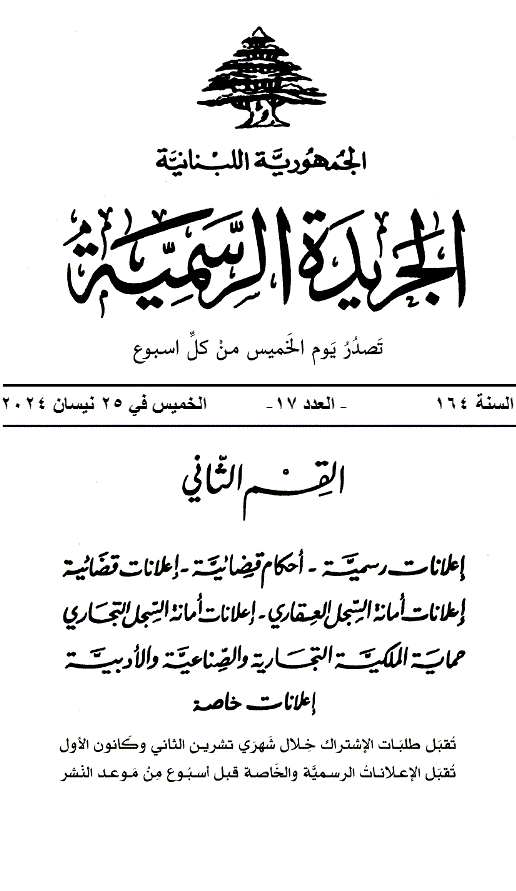 الجُمهُوريَّة اللبْنانيَّة
الجَريدَة الرَّسْمِيَّة
تَصدُرُ يَوم الخَميس منْ كلِّ اسبوع
السنة ١٦٤ - العدد ١٧- الخميس في ٢٥ نيسان ٢٠٢٤
القِسْم الثّاني
إعلانات رسميَّة - أحكام قضائيَّة - إعلانات قضائية
إعلانات أمانة السِّجل العِقاري - إعلانات أمانة السِّجل التجاري
حماية الملكيَّة التجارية والصِّناعيَّة والأدبيَّة
إعلانات خاصة
تُقبَل طلبَات الإشتراك خِلال شَهرَي تشرين الثاني وكَانون الأول
تُقبَل الإعلاناتُ الرسميَّة والخَاصة قبل أسبُوع مِنْ مَوعد النّشر